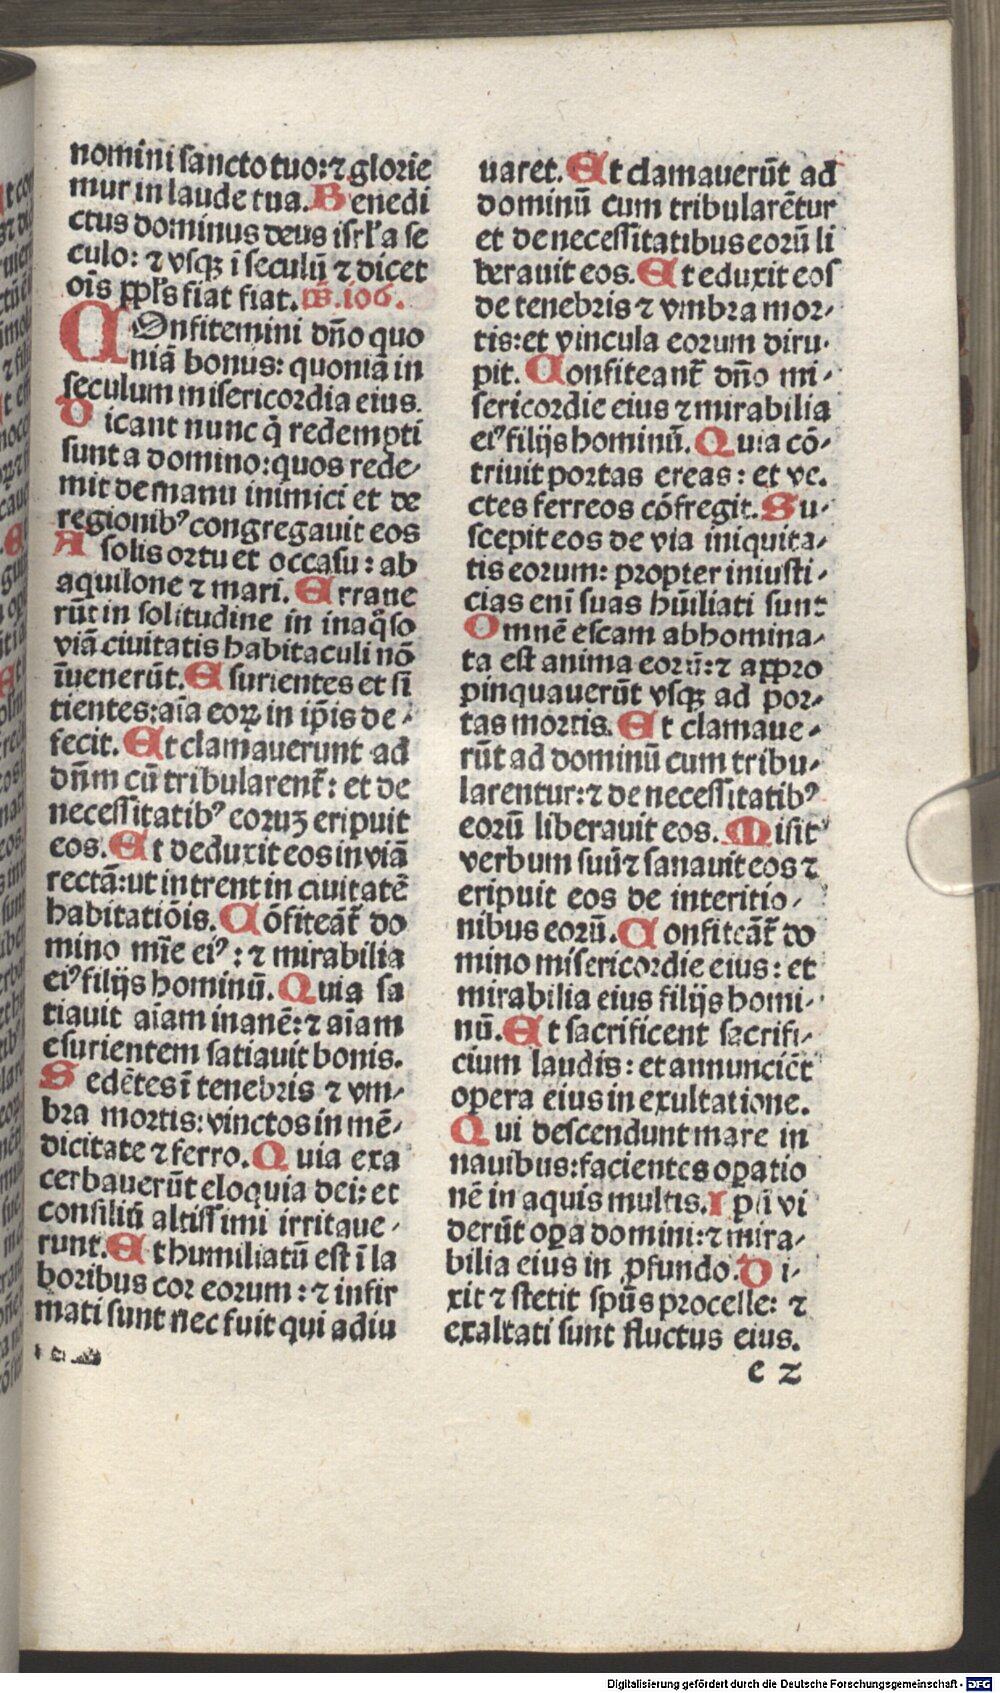 nomini sancto tuo: ⁊ glorie
mur in laude tua. Benedi
ctus dominus deus isrl'a se
culo: ⁊ vsqꝫ ī seculū ⁊ dicet
oīs ppl's fiat fiat. p̄s. 106.
COnfitemini dn̄o quo
niā bonus: quoniā in
seculum misericordia eius.
Dicant nunc q̄ redempti
sunt a domino: quos rede⸗
mit de manu inimici et de
regionibꝰ congregauit eos
A solis ortu et occasu: ab
aquilone ⁊ mari. Erraue
rūt in solitudine in inaq̊so
viā ciuitatis habitaculi nō
īuenerūt. Esurientes et si
tientes: aīa eoꝝ in ip̄is de⸗
fecit. Et clamauerunt ad
dn̄m cū tribularent᷑: et de
necessitatibꝰ eoruꝫ eripuit
eos. Et deduxit eos in viā
rectā: ut intrent in ciuitatē
habitatiōis. Cōfiteāt᷑ do
mino mīe eiꝰ: ⁊ mirabilia
eiꝰ filijs hominū. Quia sa
tiauit aīam inanē: ⁊ aīam
esurientem satiauit bonis.
Sedētes ī tenebris ⁊ vm⸗
bra mortis: vinctos in mē⸗
dicitate ⁊ ferro. Quia exa
cerbauerūt eloquia dei: et
consiliū altissimi irritaue⸗
runt. Et humiliatū est ī la
boribus cor eorum: ⁊ infir
mati sunt nec fuit qui adiu
uaret. Et clamauerūt ad
dominū cum tribularētur
et de necessitatibus eorū li
berauit eos. Et eduxit eos
de tenebris ⁊ vmbra mor⸗
tis: et vincula eorum diru⸗
pit. Confiteant᷑ dn̄o mi⸗
sericordie eius ⁊ mirabilia
eiꝰ filijs hominū. Quia cō⸗
triuit portas ereas: et ve⸗
ctes ferreos cōfregit. Su⸗
scepit eos de via iniquita⸗
tis eorum: propter iniusti⸗
cias enī suas hūiliati sunt
Omnē escam abhomina⸗
ta est anima eorū: ⁊ aꝓpro
pinquauerūt vsqꝫ ad por⸗
tas mortis. Et clamaue⸗
rūt ad dominū cum tribu⸗
larentur: ⁊ de necessitatibꝰ
eorū liberauit eos. Misit
verbum suū ⁊ sanauit eos ⁊
eripuit eos de interitio⸗
nibus eorū. Confiteāt᷑ do
mino misericordie eius: et
mirabilia eius filijs homi⸗
nū. Et sacrificent sacrifi⸗
cium laudis: et annunciēt
opera eius in exultatione.
Qui descendunt mare in
nauibus: facientes oꝑatio
nē in aquis multis. Ipsi vi
derūt oꝑa domini: ⁊ mira⸗
bilia eius in ꝓfundo. Di⸗
xit ⁊ stetit spūs procelle: ⁊
exaltati sunt fluctus eius.
e 2
Digitalisierung gefördert durch die Deutsche Forschungsgemeinschaft - DFG